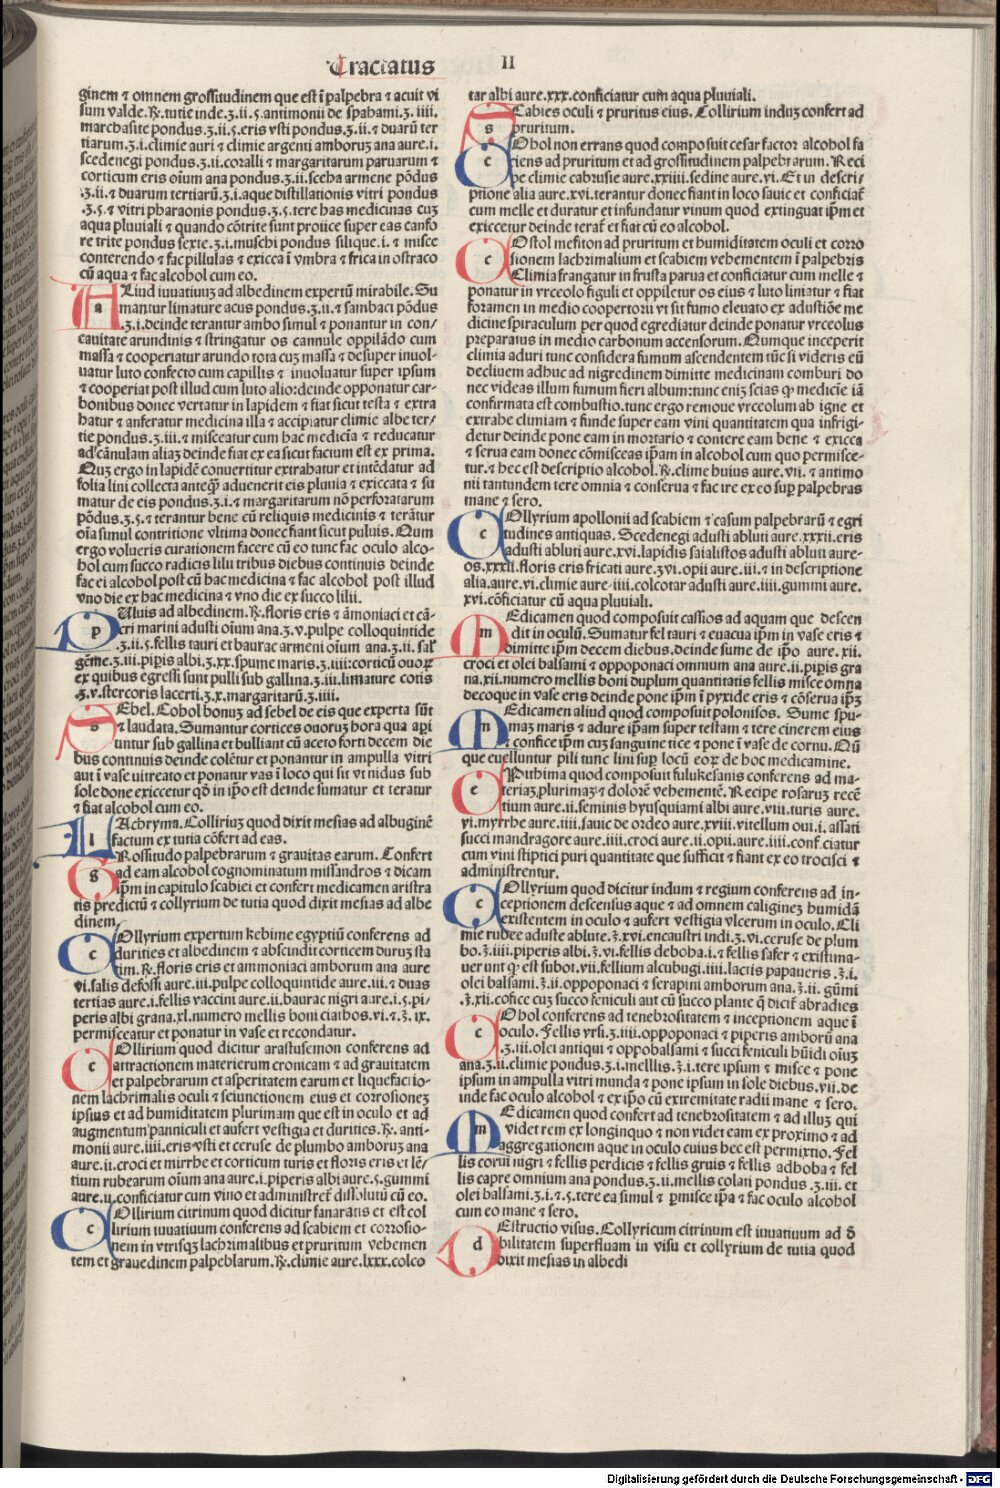 Tractatus II
ginem ⁊ omnem grossitudinem que est ī palpebra ⁊ acuit vi
sum valde. ℞. tutie inde.ʒ.ii.5.antimonii de spahami.ʒ.iiii.
marchasite pondus.ʒ.ii.5.eris vsti pondus.ʒ.ii.⁊ duarū ter
tiarum.ʒ.i.climie auri ⁊ climie argenti amboruʒ ana aure.i.
scedenegi pondus.ʒ.ii.coralli ⁊ margaritarum paruarum ⁊
corticum eris oīum ana pondus.ʒ.ii.sceba armene pōdus
.ʒ.ii.⁊ duarum tertiarū.ʒ.i.aque distillationis vitri pondus
.ʒ.5.⁊ vitri pharaonis pondus.ʒ.5.tere has medicinas cuʒ
aqua pluuiali ⁊ quando cōtrite sunt proiice super eas canfo
re trite pondus sexte.ʒ.i.muschi pondus silique.i. ⁊ misce
conterendo ⁊ fac pillulas ⁊ exicca ī vmbra ⁊ frica in ostraco
cū aqua ⁊ fac alcohol cum eo.
ALiud iuuatiuuʒ ad albedinem expertū mirabile. Su
mantur limature acus pondus.ʒ.ii.⁊ sambaci pōdus
.ʒ.i.deinde terantur ambo simul ⁊ ponantur in con/
cauitate arundinis ⁊ stringatur os cannule oppilādo cum
massa ⁊ cooperiatur arundo tota cuʒ massa ⁊ desuper inuol-
uatur luto confecto cum capillis ⁊ inuoluatur super ipsum
⁊ cooperiat post illud cum luto alio:deinde opponatur car-
bonibus donec vertatur in lapidem ⁊ fiat sicut testa ⁊ extra
hatur ⁊ anferatur medicina illa ⁊ accipiatur climie albe ter/
tie pondus.ʒ.iii.⁊ misceatur cum hac medicīa ⁊ reducatur
ad cānulam aliaʒ deinde fiat ex ea sicut factum est ex prima.
Quʒ ergo in lapidē conuertitur extrahatur et intēdatur ad
folia lini collecta anteq̄ʒ aduenerit eis pluuia ⁊ exiccata ⁊ su
matur de eis pondus.ʒ.i.⁊ margaritarum nō perforatarum
pōdus.ʒ.5.⁊ terantur bene cū reliquis medicinis ⁊ terātur
oīa simul contritione vltima donec fiant sicut puluis. Qum
ergo volueris curationem facere cū eo tunc fac oculo alco-
hol cum succo radicis lilii tribus diebus continuis deinde
fac ei alcohol post cū hac medicina ⁊ fac alcohol post illud
vno die ex hac medicina ⁊ vno die ex succo lilii.
PUluis ad albedinem.℞.floris eris ⁊ āmoniaci et cā-
cri marini adusti oīum ana.ʒ.v.pulpe colloquintide
.ʒ.ii.5.fellis tauri et baurac armeni oīum ana.ʒ.ii.sal'
gēme.ʒ.iii.pip̄is albi.ʒ.xx.spume maris.ʒ.iiii.corticū ouoꝝ
ex quibus egressi sunt pulli sub gallina.ʒ.iii.limature cotis
.ʒ.v.stercoris lacerti.ʒ.x.margaritarū.ʒ.iiii.
SEbel.Cohol bonuʒ ad sebel de eis que experta sūt
⁊ laudata.Sumantur cortices ouoruʒ hora qua aꝑi
untur sub gallina et bulliant cū aceto forti decem die
bus continuis deinde colētur et ponantur in ampulla vitri
aut ī vase vitreato et ponatur vas ī loco qui sit vt nidus sub
sole donec exiccetur qd̄ in ip̄o est deinde sumatur et teratur
⁊ fiat alcohol cum eo.
LAchryma.Colliriuʒ quod dixit mesias ad albuginē
factum ex tutia cōfert ad eas.
GRossitudo palpebrarum ⁊ grauitas earum. Confert
ad eam alcohol cognominatum missandros ⁊ dicam
ip̄m in capitulo scabiei et confert medicamen aristra
tis predictū ⁊ collyrium de tutia quod dixit mesias ad albe
dinem.
COllyrium expertum kebime egyptiū conferens ad
durities et albedinem ⁊ abscindit corticem duruʒ sta
tim.℞.floris eris et ammoniaci amborum ana aure
vi.salis defossi aure.iii.pulpe colloquintide aure.iii.⁊ duas
tertias aure.i.fellis vaccini aure.ii.baurac nigri aure.i.5.pi/
peris albi grana.xl.numero mellis boni ciathos.vi.⁊.ʒ.ix.
permisceatur et ponatur in vase et recondatur.
COllirium quod dicitur arastusemon conferens ad
attractionem materierum cronicam ⁊ ad grauitatem
et palpebrarum et asperitatem earum et liquefactio-
nem lachrimalis oculi ⁊ seiunctionem eius et corrosioneʒ
ipsius et ad humiditatem plurimam que est in oculo et ad
augmentum panniculi et aufert vestigia et durities.℞.anti-
monii aure.iiii.eris vsti et ceruse de plumbo amboruʒ ana
aure.ii.croci et mirrhe et corticum turis et floris eris et lē/
tium rubearum oīum ana aure.i.piperis albi aure.5.gummi
aure.ii.conficiatur cum vino et administret̄ dissolutū cū eo.
COllirium citrinum quod dicitur fanaratis et est col
lirium iuuatiuum conferens ad scabiem et corrosio-
nem in vtrisqʒ lachrimalibus et pruritum vehemen
tem et grauedinem palpeblarum.℞.climie aure.lxxx.colco
tar albi aure.xxx.conficiatur cum aqua pluuiali.
SCabies oculi ⁊ pruritus eius. Collirium induʒ confert ad
pruritum.
COhol non errans quod composuit cesar factor alcohol fa
ciens ad pruritum et ad grossitudinem palpebrarum. Reci
pe climie cabrusie aure.xxiiii.sedine aure.vi.Et in descri/
ptione alia aure.xvi.terantur donec fiant in loco sauic et conficiat̄
cum melle et duratur et infundatur vinum quod extinguat ip̄m et
exiccetur deinde terat̄ et fiat cū eo alcohol.
COstol mefiton ad pruritum et humiditatem oculi et corro
sionem lachrimalium et scabiem vehementem ī palpebris
Climia frangatur in frusta parua et conficiatur cum melle ⁊
ponatur in vrceolo figuli et oppiletur os eius ⁊ luto liniatur ⁊ fiat
foramen in medio coopertorii vt sit fumo eleuato ex adustiōe me
dicine spiraculum per quod egrediatur deinde ponatur vrceolus
preparatus in medio carbonum accensorum.Qumque inceperit
climia aduri tunc considera fumum ascendentem tūc si videris eū
decliuem adhuc ad nigredinem dimitte medicinam comburi do
nec videas illum fumum fieri album:tunc eniʒ scias ꝙ medicīe iā
confirmata est combustio.tunc ergo remoue vrceolum ab igne et
extrahe climiam ⁊ funde super eam vini quantitatem qua infrigi-
detur deinde pone eam in mortario ⁊ contere eam bene ⁊ exicca
⁊ serua eam donec cōmisceas ip̄am in alcohol cum quo permisce-
tur.⁊ hec est descriptio alcohol.℞.clime huius aure.vii.⁊ antimo
nii tantundem tere omnia ⁊ conserua ⁊ fac ire ex eo suꝑ palpebras
mane ⁊ sero.
COllyrium apollonii ad scabiem ⁊ casum palpebrarū ⁊ egri
tudines antiquas. Scedenegi adusti abluti aure.xxxii.eris
adusti abluti aure.xvi.lapidis saialistos adusti abluti aure-
os.xxxii.floris eris fricati aure.ʒvi.opii aure.iii.⁊ in descriptione
alia.aure.vi.climie aure.iiii.colcotar adusti aure.iiii.gummi aure.
xvi.cōficiatur cū aqua pluuiali.
MEdicamen quod composuit cassios ad aquam que descen
dit in oculū.Sumatur fel tauri ⁊ euacua ip̄m in vase eris ⁊
dimitte ip̄m decem diebus.deinde sume de ip̄o aure.xii.
croci et olei balsami ⁊ oppoponaci omnium ana aure.ii.piꝑis gra
na.xii.numero mellis boni duplum quantitatis fellis misce omnia
decoque in vase eris deinde pone ip̄m ī pyxide eris ⁊ cōserua ip̄ʒ
MEdicamen aliud quod composuit polonisos. Sume spu-
maʒ maris ⁊ adure ip̄am super testam ⁊ tere cinerem eius
⁊ confice ip̄m cuʒ sanguine tice ⁊ pone ī vase de cornu. Qū
que euelluntur pili tunc lini suꝑ locū eoꝝ de hoc medicamine.
EPithima quod composuit fulukesanis conferens ad ma-
teriaʒ.plurimaʒ ⁊ dolorē vehementē. Recipe rosaruʒ recē
tium aure.ii.seminis hyusquiami albi aure.viii.turis aure.
vi.myrrhe aure.iiii.sauic de ordeo aure.xviii.vitellum oui.i.assati
succi mandragore aure.iiii.croci aure.ii.opii aure.iiii.conficiatur
cum vini stiptici puri quantitate que sufficit ⁊ fiant ex eo trocisci ⁊
administrentur.
COllyrium quod dicitur indum ⁊ regium conferens ad in-
ceptionem descensus aque ⁊ ad omnem caligineʒ humidā
existentem in oculo ⁊ aufert vestigia vlcerum in oculo.Cli
mie rubee aduste ablute.ʒ.xvi.encaustri indi.ʒ.vi.ceruse de plum
bo.ʒ.iiii.piperis albi.ʒ.vi.fellis deboba.i.⁊ fellis safer ⁊ existima-
uerunt ꝙ est subot.vii.fellium alcubugi.iiii.lactis papaueris.ʒ.i.
olei balsami.ʒ.ii.oppoponaci ⁊ serapini amborum ana.ʒ.ii.gūmi
.ʒ.xii.cōfice cuʒ succo feniculi aut cū succo plante q̄ dicit̄ abradies
COhol conferens ad tenebrositatem ⁊ inceptionem aque ī
oculo.Fellis vrsi.ʒ.iiii.oppoponaci ⁊ piperis amborū ana
.ʒ.iii.olei antiqui ⁊ oppobalsami ⁊ succi feniculi hūidi oīuʒ
ana.ʒ.ii.climie pondus.ʒ.i.mellis.ʒ.i.tere ipsum ⁊ misce ⁊ pone
ipsum in ampulla vitri munda ⁊ pone ipsum in sole diebus.vii.de
inde fac oculo alcohol ⁊ ex ip̄o cū extremitate radii mane ⁊ sero.
MEdicamen quod confert ad tenebrositatem ⁊ ad illuʒ qui
videt rem ex longinquo ⁊ non videt eam ex proximo ⁊ ad
aggregationem aque in oculo cuius bec est permixtio.Fel
lis corui nigri ⁊ fellis perdicis ⁊ fellis gruis ⁊ fellis adhoba ⁊ fel
lis capre omnium ana pondus.ʒ.ii.mellis colati pondus.ʒ.iii.et
olei balsami.ʒ.i.⁊.5.tere ea simul ⁊ ꝑmisce ip̄a ⁊ fac oculo alcohol
cum eo mane ⁊ sero.
DEstructio visus.Collyricum citrinum est iuuatiuum ad d̄
bilitatem superfluam in visu et collyrium de tutia quod
dixit mesias in albedi
Digitalisierung gefördert durch die Deutsche Forschungsgemeinschaft - DFG